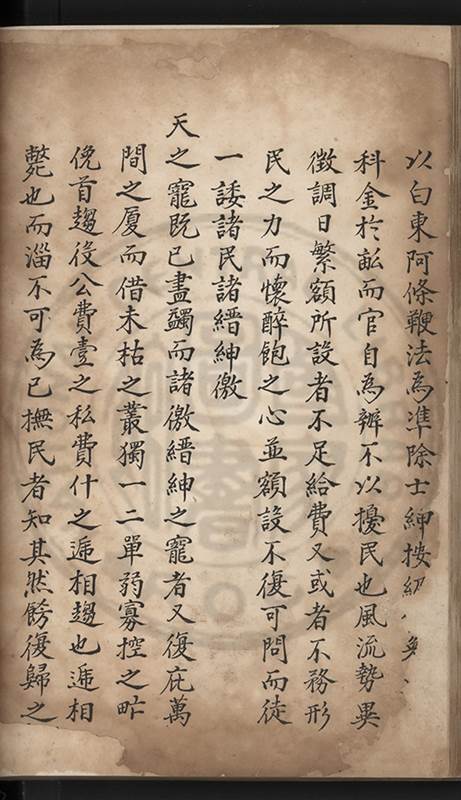 以白東阿條鞭法為準除士紳按
科金於畝而官自為辦不以擾民也風流勢異
徵調日繁額所設者不足給費又或者不務形
民之力而懷醉飽之心並額設不復可問而徒
一諉諸民諸縉紳徼
天之寵既已盡蠲而諸徼縉紳之寵者又復庇萬
間之厦而借未枯之叢獨一二單弱寡控之甿
俛首趨役公費壹之私費什之遞相趨也遞相
斃也而淄不可為已撫民者知其然餙復歸之